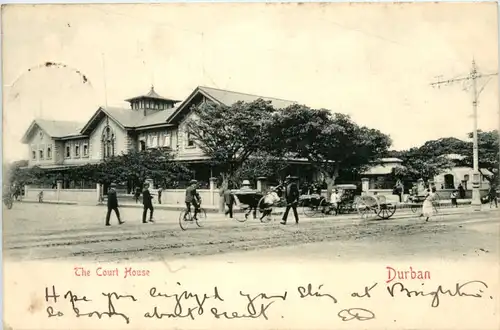 The Court House
Durban
Hope you enjoyed your stay at Brighton.
So sorry about scent.